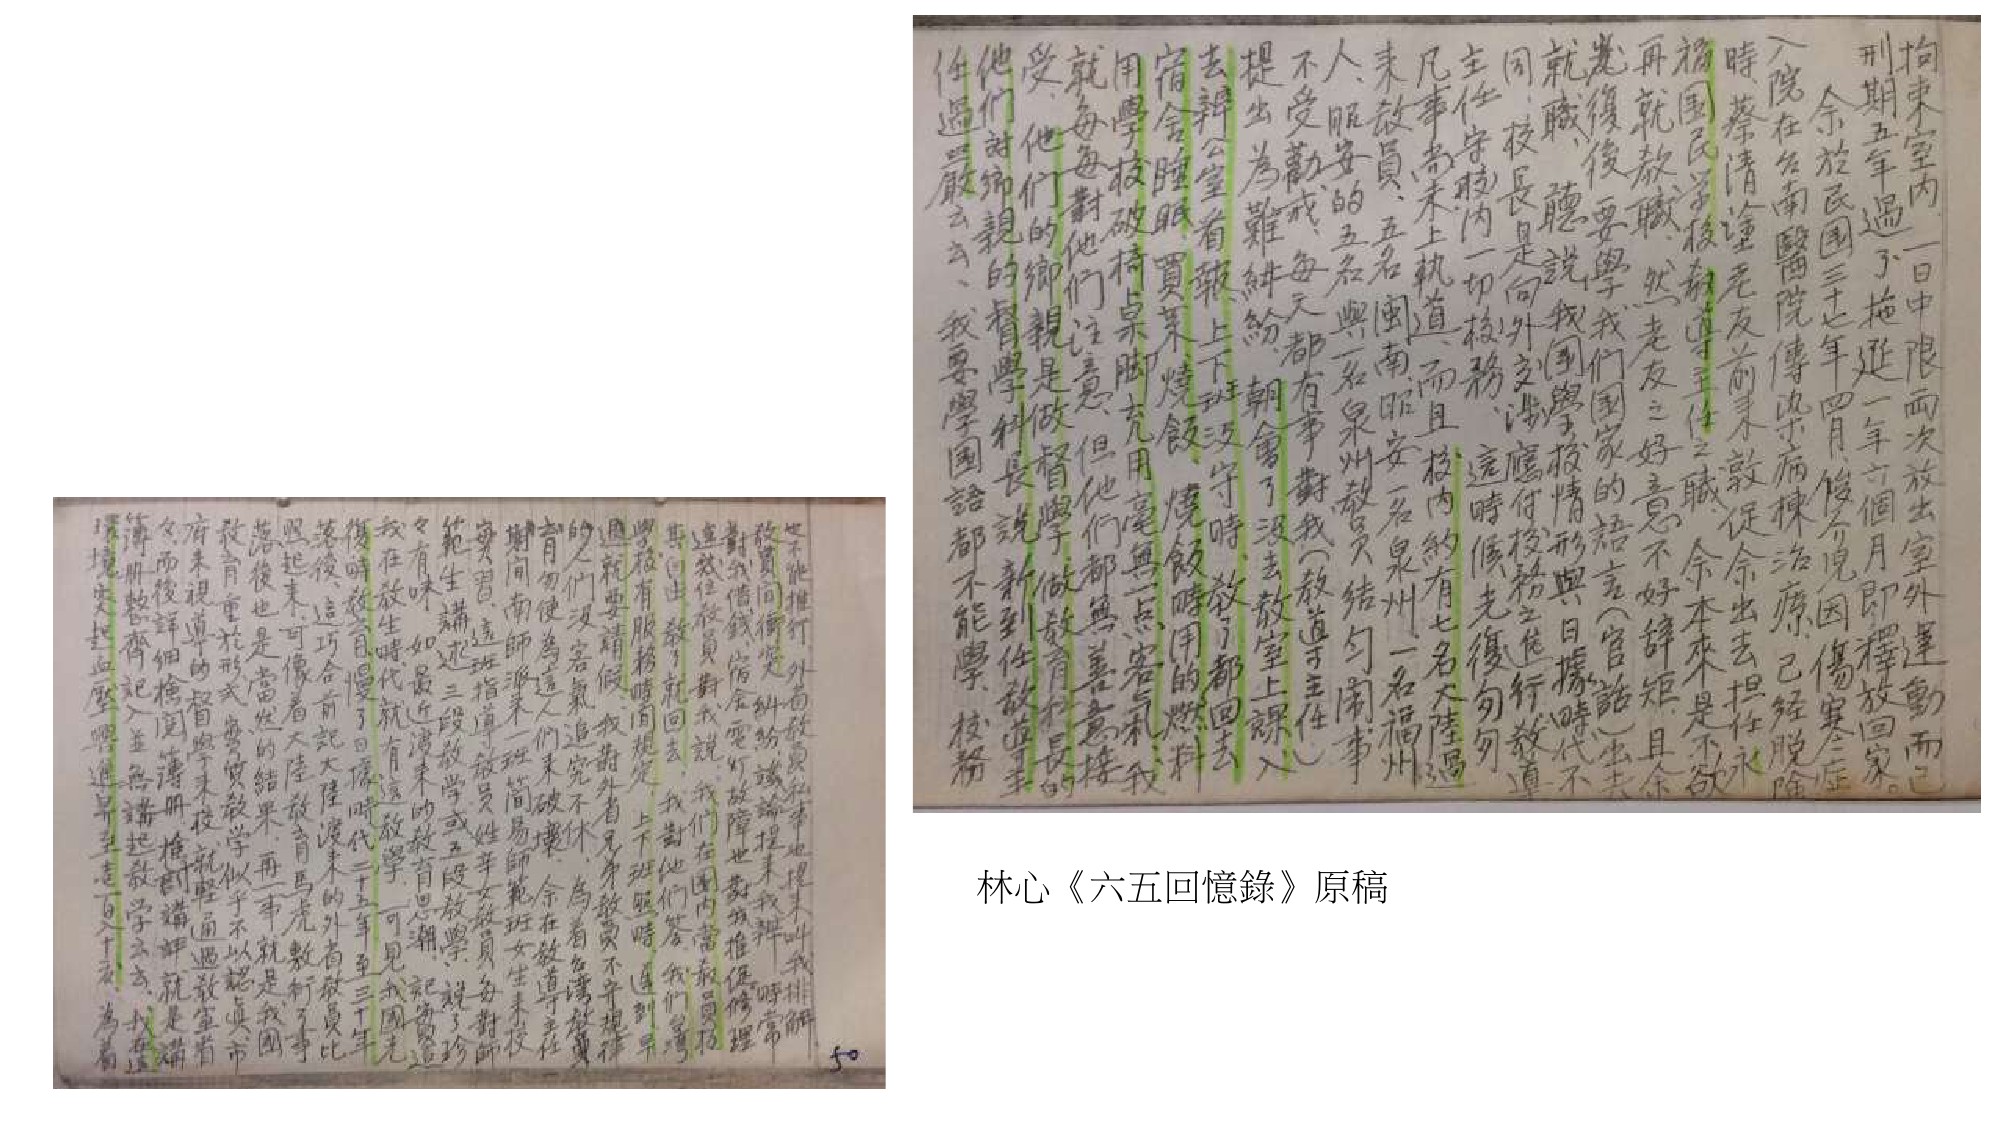 拘束室内、一日中限両次放出室外運動而已
刑期五年過了拖延一年六個月即釋放回家。
余於民國三十七年四月俊介兒因傷寒症
入院在台南醫院傳染病棟治療、已経脱險
時、蔡清塗老友前來敦促余出去担任永
福国民学校教導主任之職、余本來是不欲
再就教職、然老友之好意不好辞矩、且余
光復後要學我们國家的語言(官話)出去
就職、聽説我國學校情形與日據時代不
同、校長是向外交涉應付校務之進行教導
主任守校内一切校務、這時候光復匆匆
凡事尚未上執道、而且校内約有七名大陸過
来教員、五名閩南昭安一名泉州、一名福州
人、昭安的五名與一名泉州教員結匀鬧事
不受勸戒、每天都有事對我(教導主任)
提出為難糾紛、朝會了没去教室上課入
去辦公室看報、上下班没守時、教了都回去
宿舍睡眠、買菜燒飯、燒飯時用的燃料
用學校破椅桌脚充用毫無一点客气礼、我
就每每對他们注意、但他们都無善意接
受、他们的鄉親是做督學做教育科長的
他們討鄉親的督學科長説新到任教導主
任過嚴云云、我要學國語都不能學、校務
也不能推行、外省教員私事也提來叫我排解
教員间衝突糾紛議論提来我辦、時常
對我借錢、宿舍電灯故障也對我推促修理
這幾位教員對我説、我們在國内當教員極
其自由、教了就回去、我對他们答、我们台灣
學校有服務時间規定、上下班照時、遲到早
退就要請假、我對外省兄弟教員不守規律
的人们没客氣追究不休、為着台灣教員
育勿使為這人们来破壞、余在教導主任
期间南師派来一班简易師範班女生来校
實習、這班指導教員姓辛女教員每對師
範生講述三段教学或五段教學、説了珍
々有味、如最近演来的教育思潮、記實這
我在教生時代就有這教學、可見我國光
復時教育日慢了日據時代二十五年至三十年
落後、這巧合前記大陸渡来的外省教員比
照起来、可像着大陸教育馬虎敷衍了事
落後也是當然的結果、再一事就是我國
教育重於形式、實質教学似乎不以認真、市
府来視導的督學来校、就経通過教室省
々而後詳细檢閲簿册、檢討講評就是講
簿册整齊記入並無講起教学云云、我在這
環境突起血壓興進昇至壹百八十度、為着
50
林心《六五回憶錄》原稿